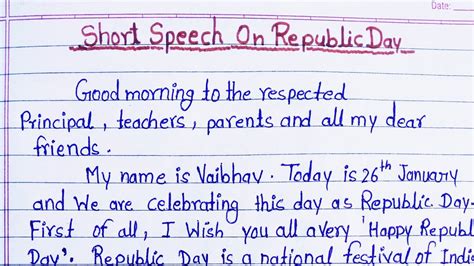 Date:
Short Speech On Republic Day
Good morning to the respected
Principal, teachers, parents and all my dear
friends.
My name is Vaibhav. Today is 26th January
and We are celebrating this day as Republic Day.
First of all, I Wish you all a very 'Happy Republ
Day'. Republic Day is a national festival of Indi